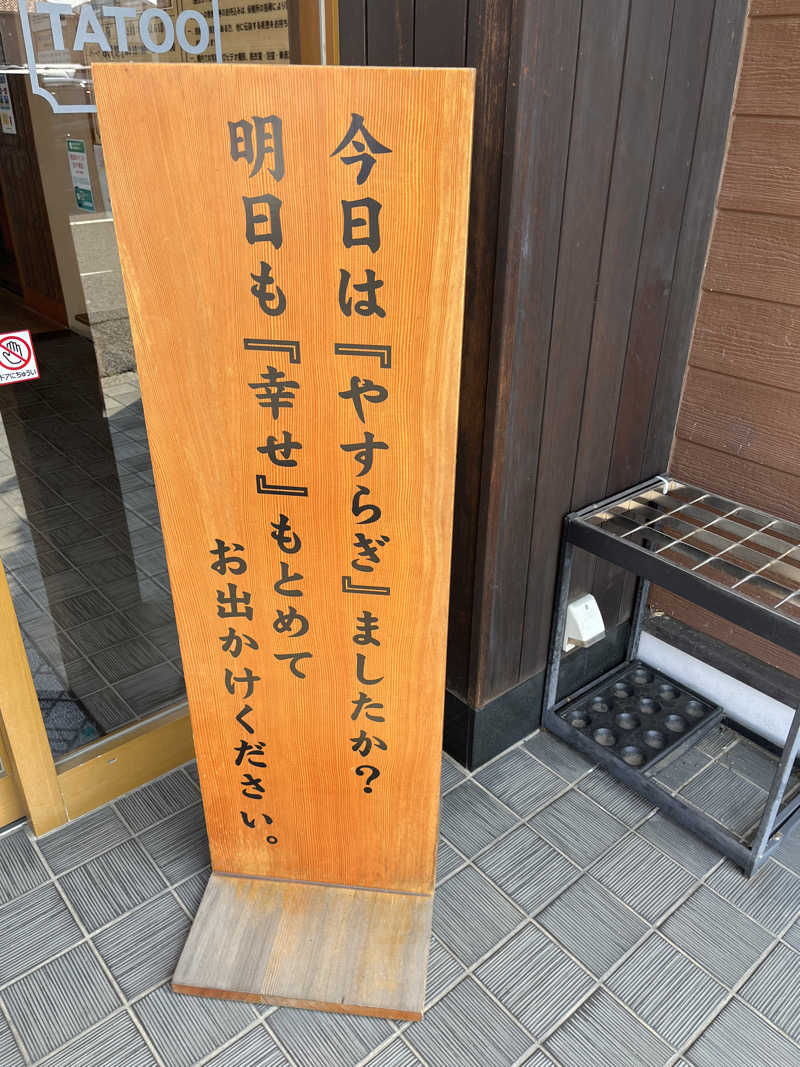 今日は『やすらぎ』ましたか？
明日も『幸せ』もとめて
お出かけください。
OOTAT
ドアにちゅうい